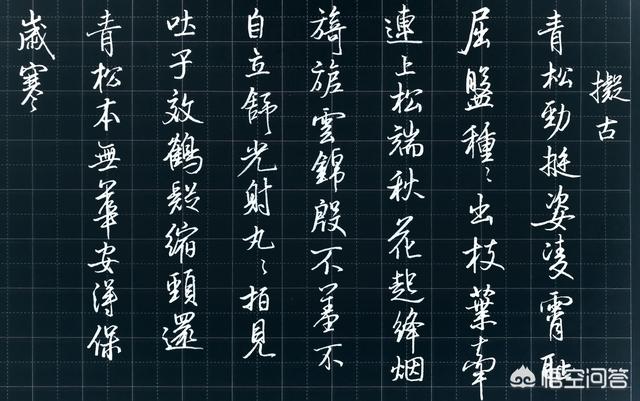 擬古
青松勁挺姿凌霄耻
屈盤種〻出枝葉牽
連上松端秋花起絳烟
旖旎雲錦殷不羞不
自立舒光射丸〻柏見
吐子效鶴疑縮頸還
青松本無華安得保
歲寒
悟空问答